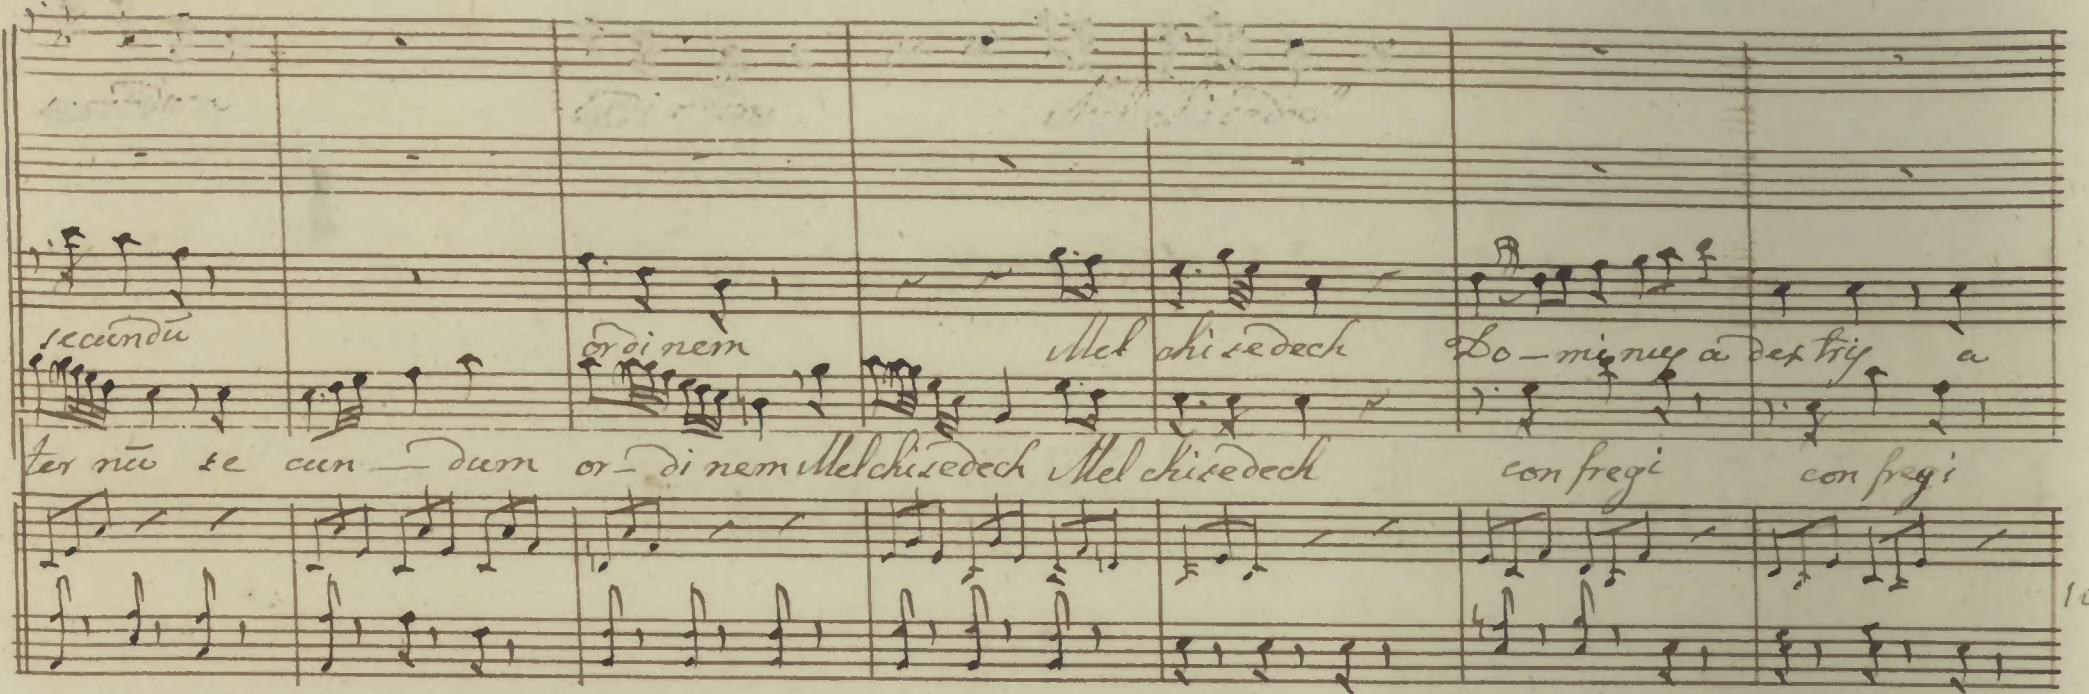 secundū ordinem Mel chisedech Do-minus a dextris a
ter nū se cun — dum or-di nem Melchisedech Mel chisedech con fregi con fregi